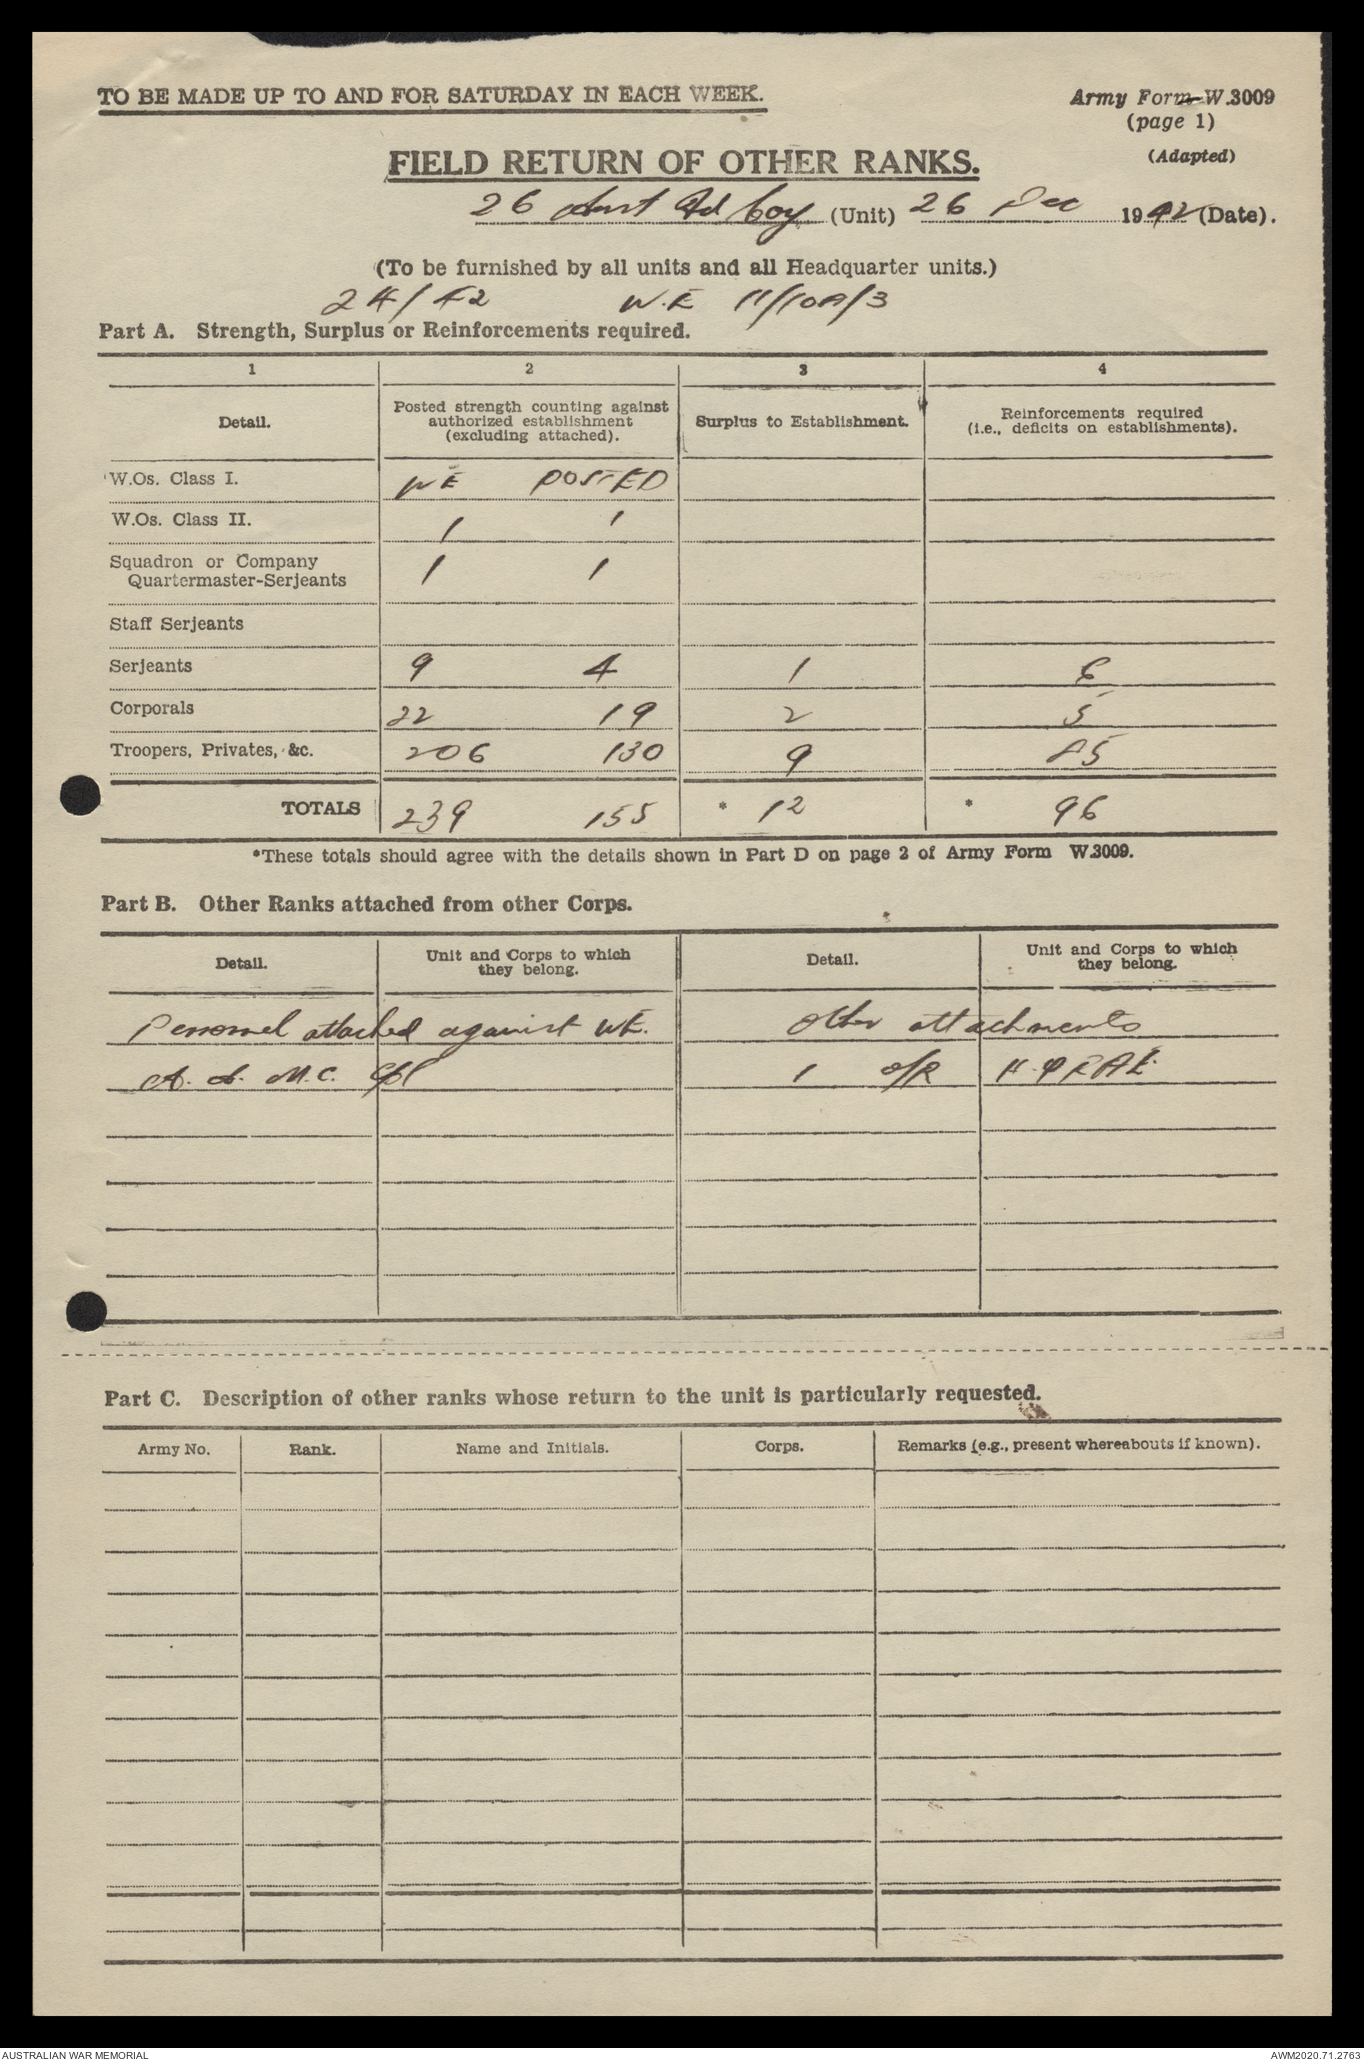 TO BE MADE UP TO AND FOR SATURDAY IN EACH WEEK.
Army Form W.3009
(page 1)
(Adapted)
FIELD RETURN OF OTHER RANKS.
26 Aust Fd Coy (Unit) 26 Dec 1942 (Date).
(To be furnished by all units and all Headquarter units.)
24/42 W.E 11/10A/3
Part A. Strength, Surplus or Reinforcements required.
1 2 3 4
Detail. Posted strength counting against authorized establishment (excluding attached). Surplus to Establishment. Reinforcements required (i.e., deficits on establishments).
W.Os. Class I. WE POSTED
W.Os. Class II. 1 1
Squadron or Company
Quartermaster-Serjeants 1 1
Staff Serjeants
Serjeants 9 4 1 6
Corporals 22 19 2 5
Troopers, Privates, &c. 206 130 9 85
TOTALS 239 155 * 12 * 96
*These totals should agree with the details shown in Part D on page 2 of Army Form W.3009.
Part B. Other Ranks attached from other Corps.
Detail. Unit and Corps to which they belong. Detail. Unit and Corps to which they belong.
Personnel attached against WE. Other attachments
A.A.M.C. Cpl 1 O/R H.Q RAE
Part C. Description of other ranks whose return to the unit is particularly requested.
Army No. Rank. Name and Initials. Corps. Remarks (e.g., present whereabouts if known).
AUSTRALIAN WAR MEMORIAL AWM2020.71.2763